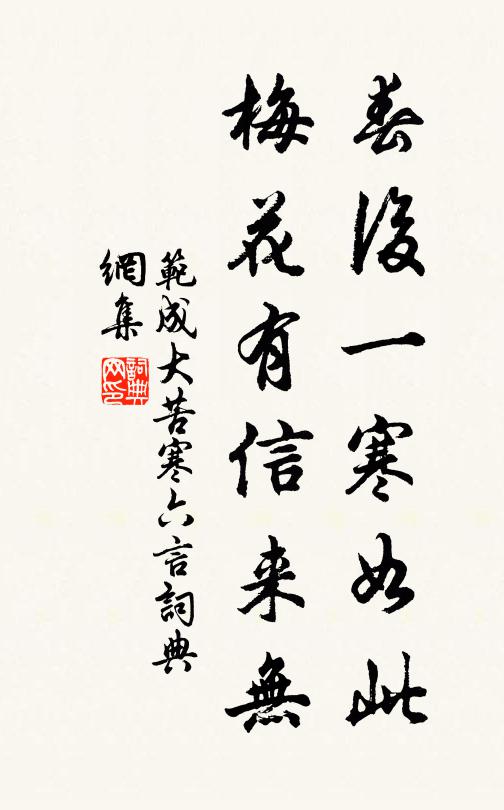 春後一寒如此
梅花有信来無
範成大苦寒六言詞典
網集
詞典
网印